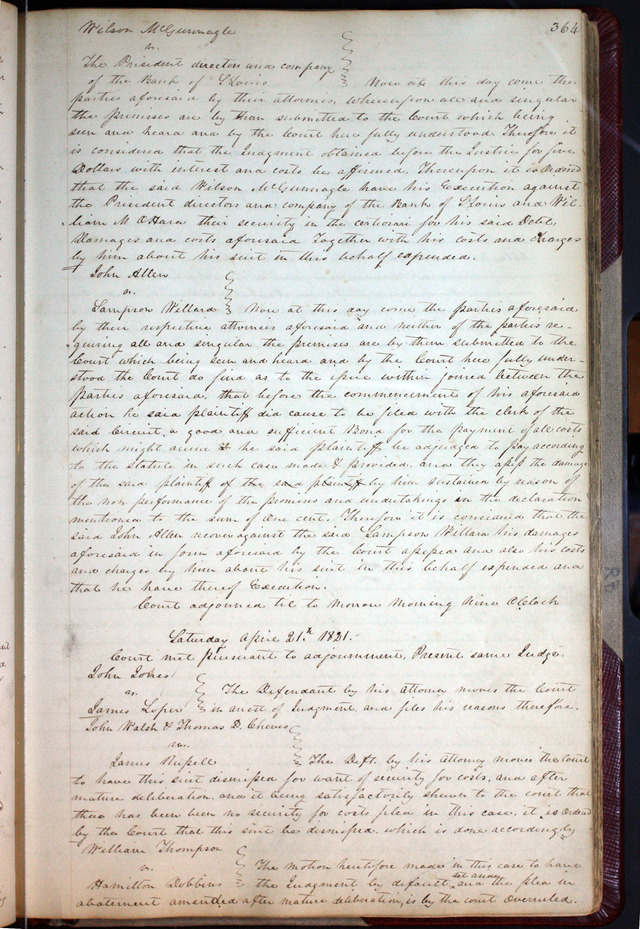 364
Wilson McGunnagle
vs.
The President directors and company
of the Bank of St Louis Now at this day come the
parties aforesaid by their attornies, whereupon all and singular
the premises are by them submitted to the Court which being
seen and heard and by the Court here fully understood Therefore it
is considered that the Judgment obtained before the Justice for five
Dollars with interest and costs be affirmed, Thereupon it is Ordered
that the said Wilson McGunnagle have his Execution against
the President directors and company of the Bank of St Louis and Wil-
liam M OHara their security in the certiorari for his said Debt,
Damages and costs aforesaid Together with his costs and Charges
by him about his suit in this behalf expended.
John Allen
vs.
Sampson Willard Now at this day come the parties aforesaid
by their respective attornies aforesaid and neither of the parties re-
quiring all and singular the premises are by them submitted to the
Court which being seen and heard and by the Court here fully under-
stood the Court do find as to the issue within joined between the
parties aforesaid, that before the commencement of his aforesaid
action he said plaintiff did cause to be filed with the clerk of the
said Circuit, a good and sufficient Bond for the payment of all costs
which might accrue & he said plaintiff be adjudged to pay according
to the statute in such case made & provided. and they assess the damage
of the said plaintiff of the said plaintiff by him sustained by reason of
the non performance of the promises and undertakings in the declaration
mentioned to the sum of One cent. Therefore it is considered that the
said John Allen recover against the said Sampson Willard his damages
aforesaid in form aforesaid by the Court assessed and also his costs
and charges by him about his suit in this behalf expended and
that he have thereof Execution.
Court adjourned til to Morrow Morning Nine OClock
Saturday April 21st 1821.
Court met pursuant to adjournment, Present same Judge.
John Jones
vs.
The Defendant by his Attorney moves the Court
James Loper in arrest of Judgment, and files his reasons therefore.
John Walsh & Thomas D. Cheves
vs.
James Russell The Deft. by his Attorney moves the Court
to have this suit dismissed for want of security for costs, and after
mature deliberation, and it being satisfactorily shewn to the court that
there has been been no security for costs filed in this case, it is Ordered
by the Court that this suit be dismissed, which is done accordingly
William Thompson
vs. The Motion heretofore made in this case to have
set aside
Hamilton Robbins the Judgment by default, and the plea in
abatement amended after mature deliberation, is by the court Overruled.